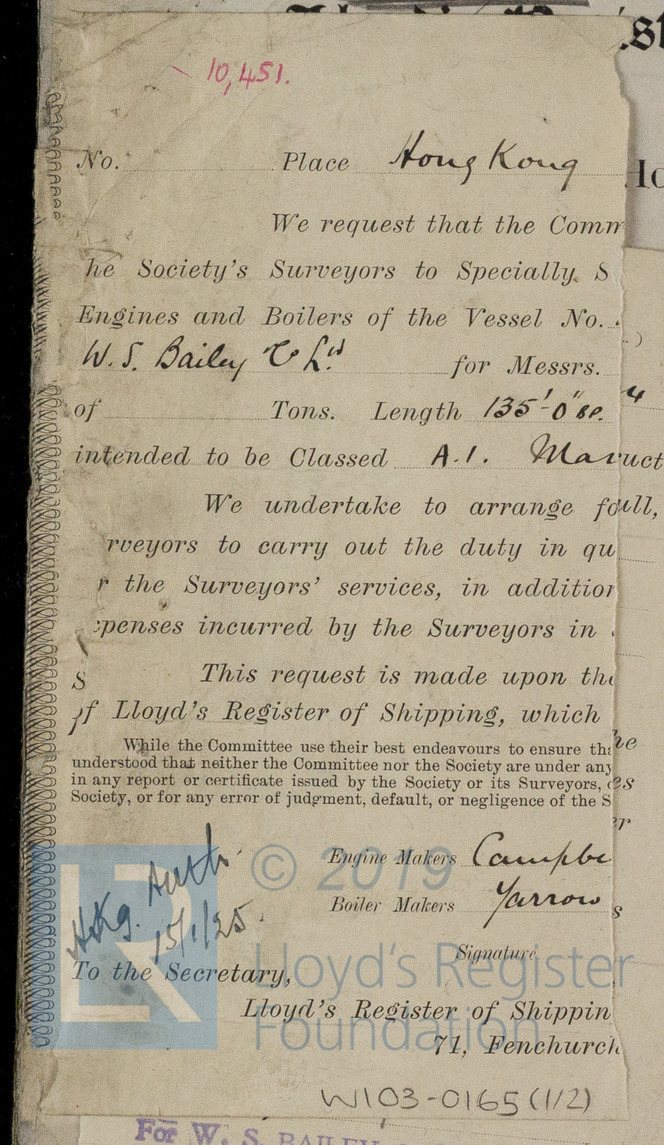 10,451.
No. Place Hong Kong
We request that the Comm
he Society's Surveyors to Specially S
Engines and Boilers of the Vessel No.
W. S. Bailey & Co Ld for Messrs.
of Tons. Length 135'-0" BP.
intended to be Classed A.1.
We undertake to arrange fo ull,
rveyors to carry out the duty in qu
r the Surveyors' services, in addition
penses incurred by the Surveyors in
S This request is made upon the
of Lloyd's Register of Shipping, which
While the Committee use their best endeavours to ensure tha
understood that neither the Committee nor the Society are under any
in any report or certificate issued by the Society or its Surveyors,
Society, or for any error of judgment, default, or negligence of the S
Engine Makers Campbe
Boiler Makers Yarrow
Hkg. Auth.
15/1/25.
Signature
To the Secretary,
Lloyd's Register of Shippin
71, Fenchurch
© 2019
Lloyd's Register
Foundation
LR
W103-0165 (1/2)
For W. S. BAILEY